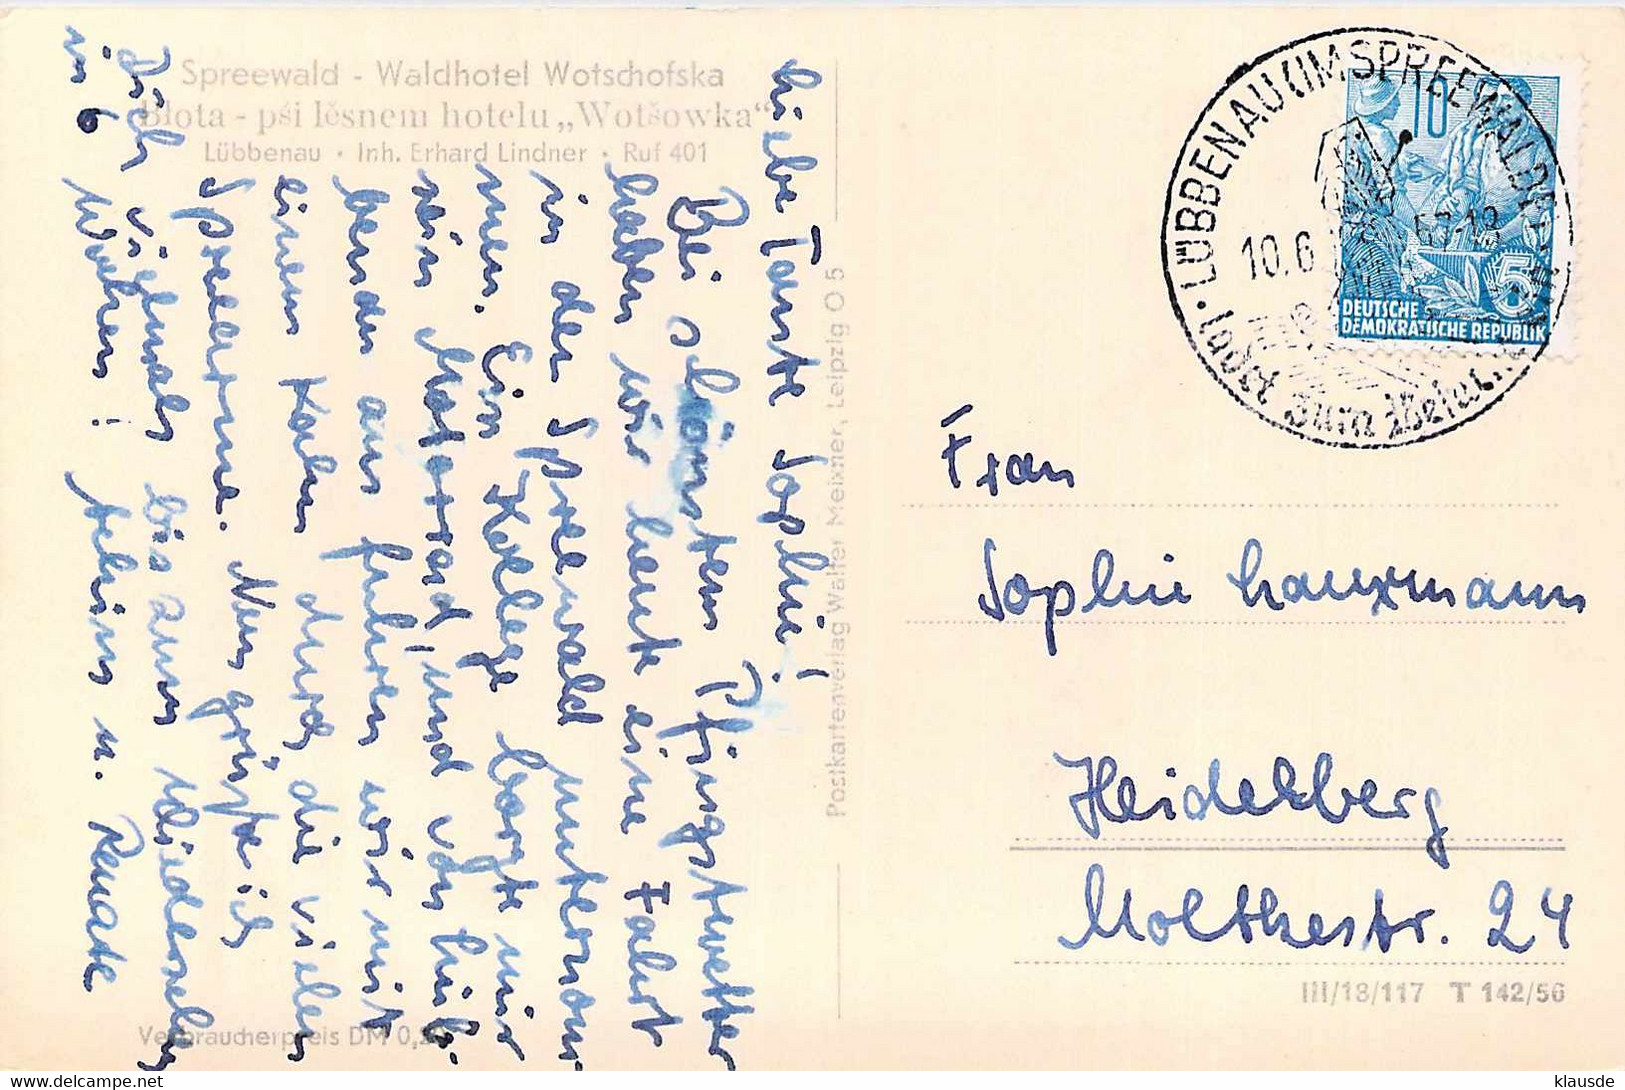 Spreewald - Waldhotel Wotschofska
Błota - pśi lěsnem hotelu „Wotšowka“
Lübbenau · Inh. Erhard Lindner · Ruf 401
Liebe Tante Sophie!
Bei schönstem Pfingstwetter
haben wir heute eine Fahrt
in den Spreewald unternom-
men. Ein Kollege borgte mir
sein Motorrad, und von Lüb-
benau aus fuhren wir mit
einem Kahn durch die vielen
Spreearme. Nun grüße ich
Dich vielmals bis zum Wiedersehn
in 6 Wochen! u. Renate
Verbraucherpreis DM 0,20
Postkartenverlag Walter Meixner, Leipzig O 5
LÜBBENAU (IM SPREEWALDE)
10.6.57-18
10
5
DEUTSCHE
DEMOKRATISCHE REPUBLIK
Frau
Sophie
Heidelberg
Moltkestr. 24
III/18/117 T 142/56
klausde